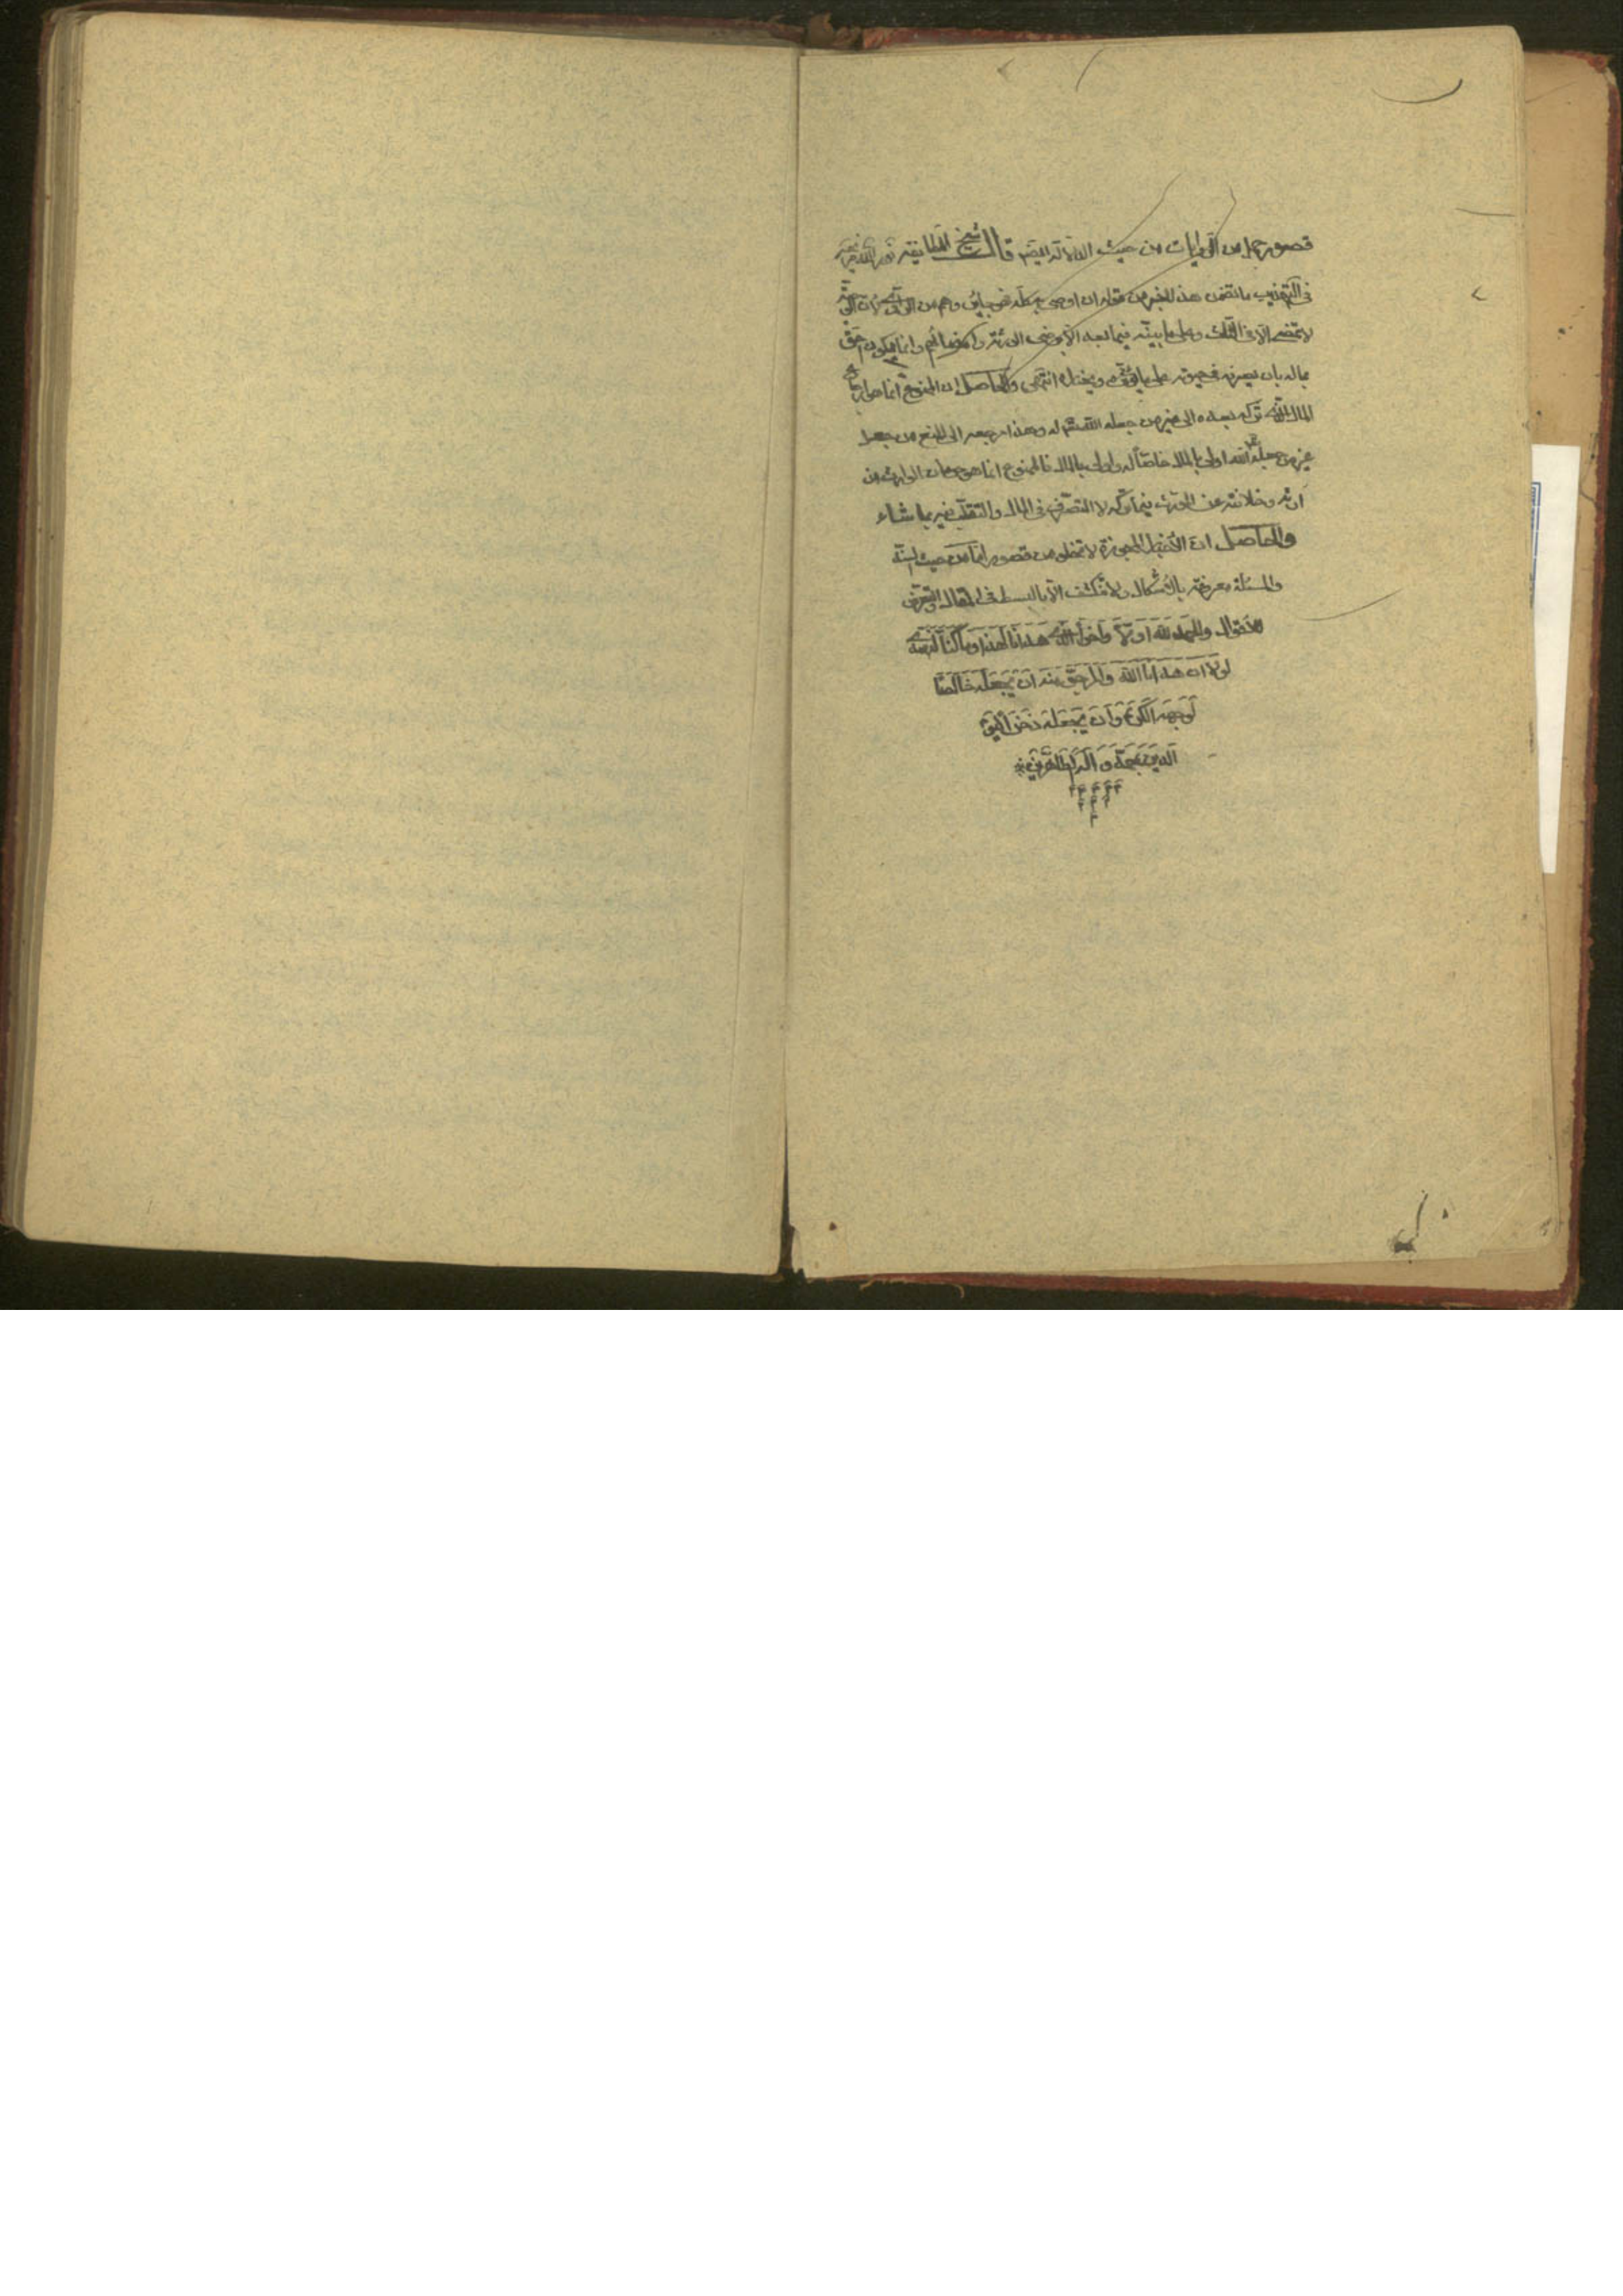 قصور جملة من الروايات من حيث الدلالة ايضا قال شيخ الطائفة نور الله ضريحه
في التهذيب ما تضمن هذا الخبر من قوله ان اوصى به كله فهو جايز وهم من الراوى لان الوصية
لا تمضى الا في الثلث وعلى ما بينه فيما بعد الا ان يرضى الورثة وانما يكون احق
بماله بان يصرفه في حيوته على ما ويختاره انتهى والحاصل ان الممنوع انما هو ارجاع
المال الذي تركه بعده الى غير من جعله الله له وهذا مرجعه الى المنع من جعل
غير من جعله الله اولى بالمال خاصا له واولى بالمال فالممنوع انما هو حرمان الوارث من
ارثه وخلافته عن المورث فيما تركه لا التصرف في المال والتقلب فيه بما شاء
والحاصل ان الأخبار المجوزة لا تخلو من قصور اما من حيث السند
والمسئلة معروفة بالاشكال ولا تنكشف الا بالبسط في المقال والتعرض
للاقوال والحمد لله اولا واخرا الذي هدانا لهذا وما كنا لنهتدي
لولا ان هدانا الله والمرجو منه ان يجعله خالصا
لوجهه الكريم وان يجعله ذخرا ليوم
الدين بمحمد و اله الطاهرين